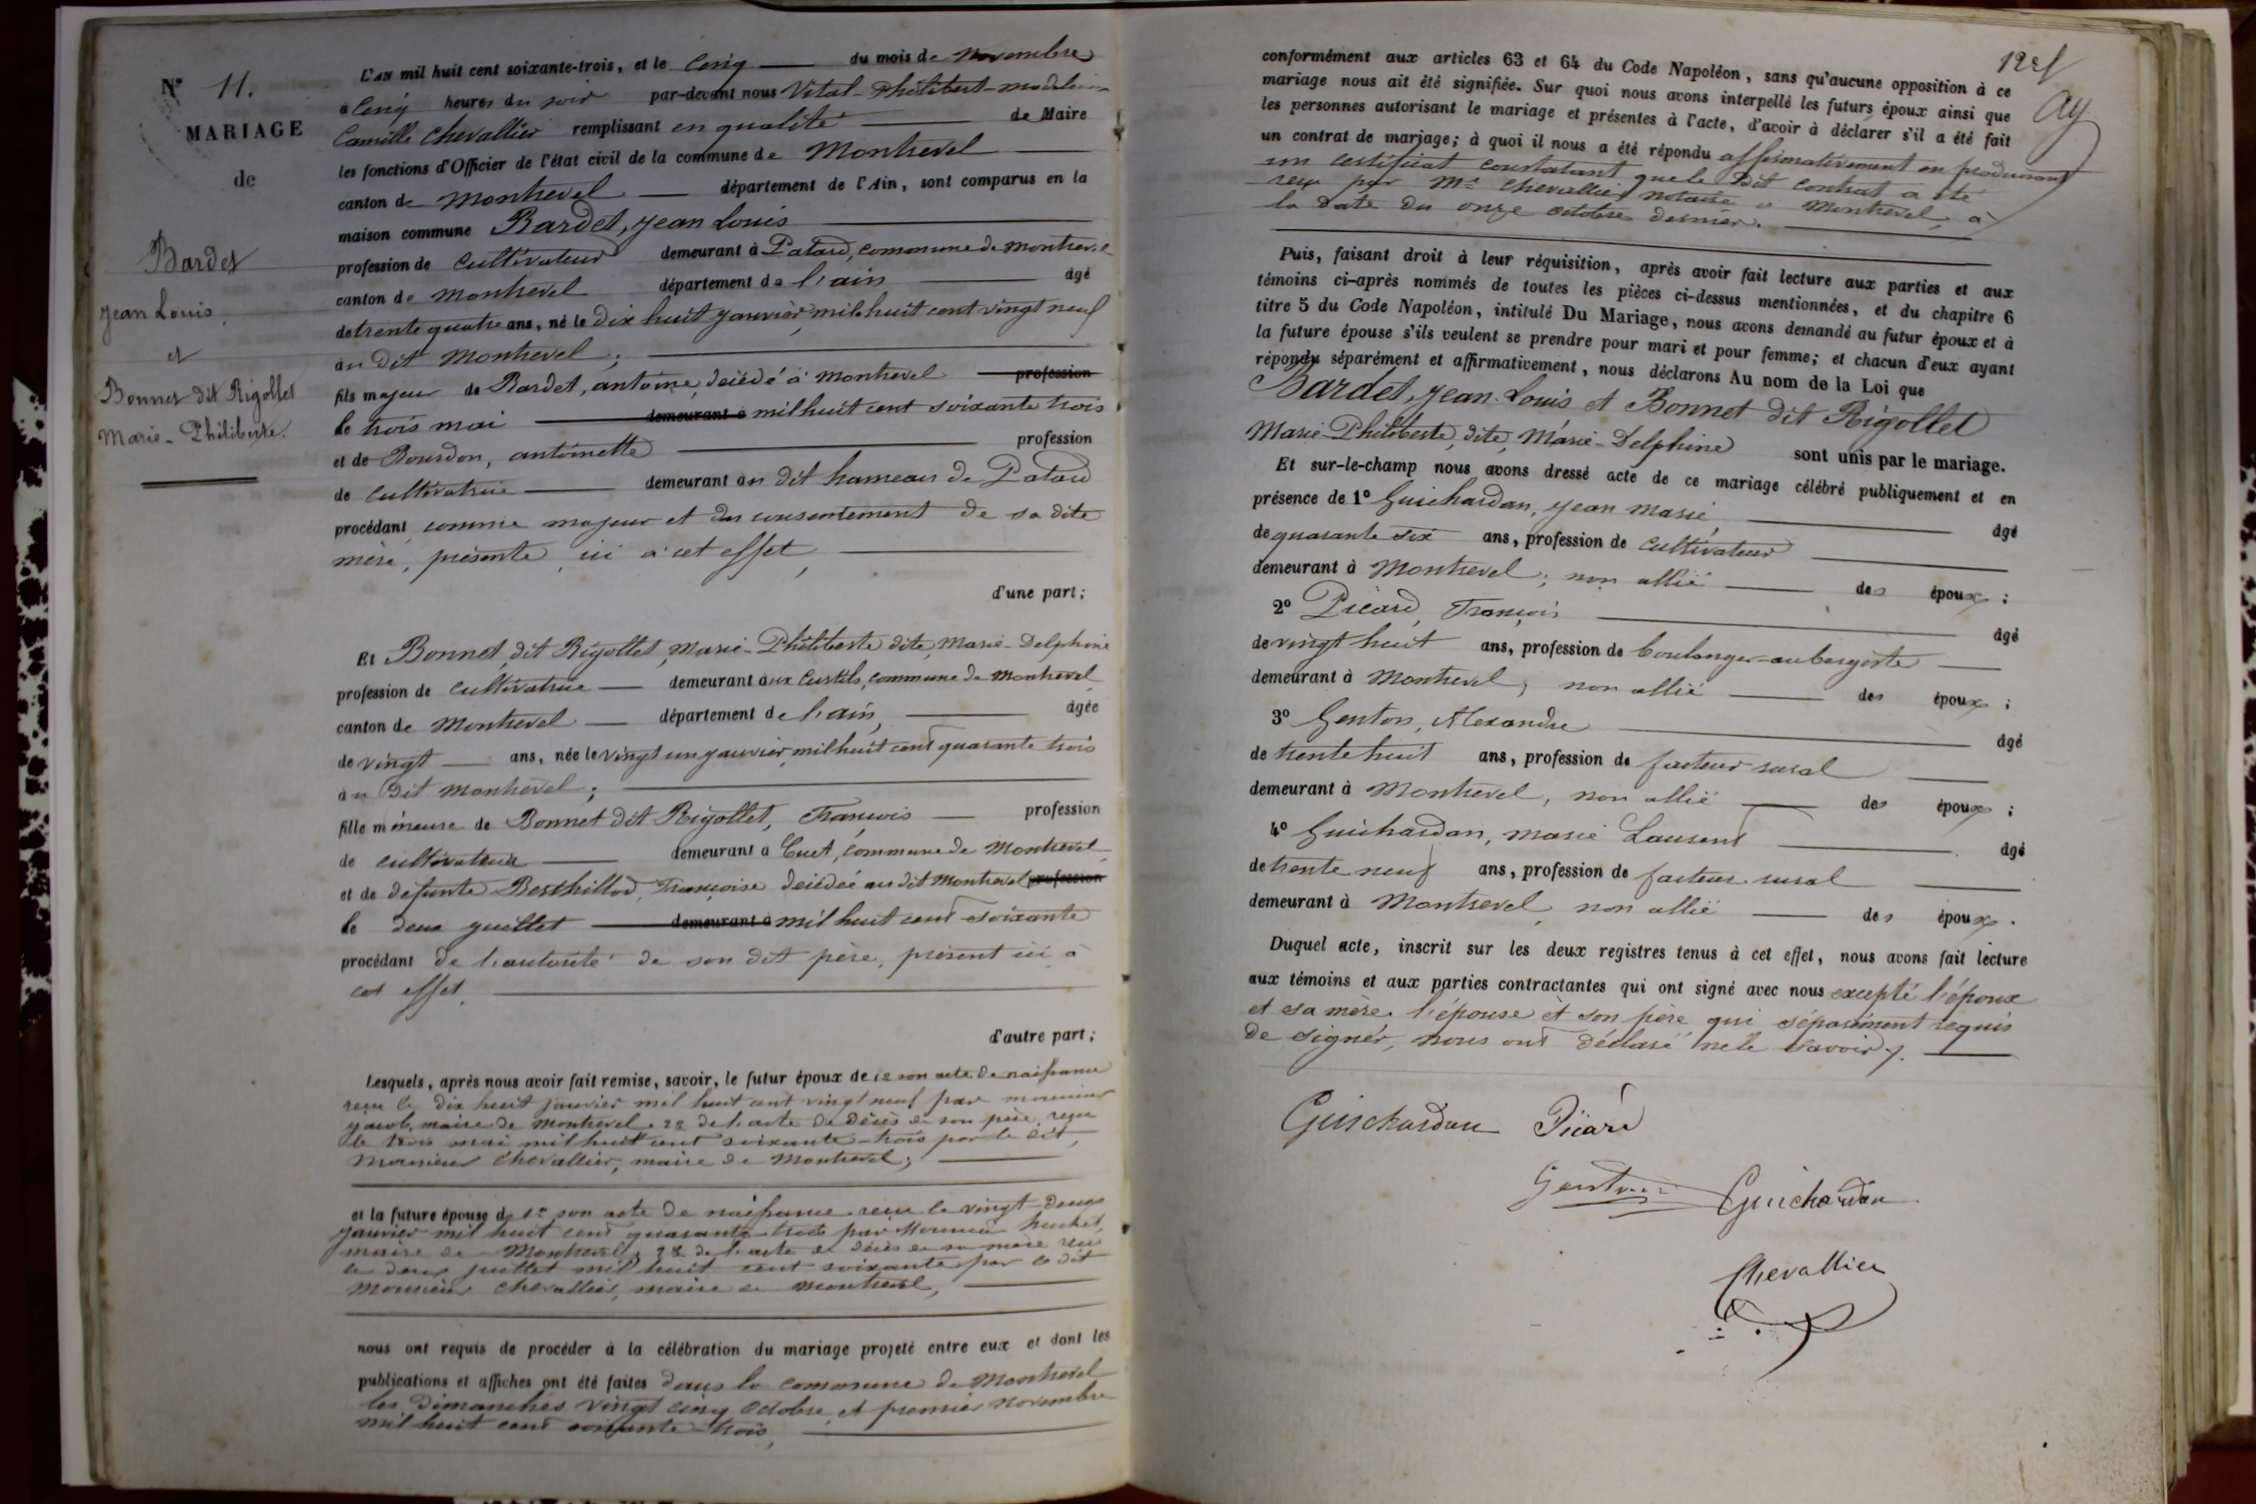 N° 11.
MARIAGE
de
Bardet
Jean Louis,
et
Bonnet dit Rigollet
Marie-Philiberte.
L'AN mil huit cent soixante-trois, et le cinq du mois de novembre
à cinq heures du soir par-devant nous Vital-Philibert-
Camille Chevallier remplissant en qualité de Maire
les fonctions d'Officier de l'état civil de la commune de Montrevel
canton de Montrevel département de l'Ain, sont comparus en la
maison commune Bardet, Jean Louis
profession de cultivateur demeurant à Patard, commune de Montrevel
canton de Montrevel département de l'ain âgé
de trente quatre ans, né le dix huit janvier mil huit cent vingt neuf
au dit Montrevel;
fils majeur de Bardet, antoine, décédé à Montrevel profession
le trois mai demeurant à mil huit cent soixante trois
et de Bourdon, antoinette profession
de cultivatrice demeurant au dit hameau de Patard
procédant comme majeur et du consentement de sa dite
mère, présente ici à cet effet,
d'une part;
Et Bonnet dit Rigollet, Marie-Philiberte dite, Marie-Delphine
profession de cultivatrice demeurant aux Curtils, commune de Montrevel
canton de Montrevel département de l'ain, âgée
de vingt ans, née le vingt un janvier mil huit cent quarante trois
au dit Montrevel;
fille mineure de Bonnet dit Rigollet, François profession
de cultivateur demeurant à Cuet, commune de Montrevel
et de défunte Berthillod, Françoise décédée au dit Montrevel profession
le deux juillet demeurant à mil huit cent soixante
procédant de l'autorité de son dit père, présent ici à
cet effet,
d'autre part;
Lesquels, après nous avoir fait remise, savoir, le futur époux de 1° son acte de naissance
reçu le dix huit janvier mil huit cent vingt neuf par monsieur
Jacob, maire de Montrevel, 2° de l'acte de décès de son père, reçu
le trois mai mil huit cent soixante-trois par le dit
Monsieur Chevallier, maire de Montrevel;
et la future épouse de 1° son acte de naissance reçu le vingt-deux
janvier mil huit cent quarante trois par Monsieur
maire de Montrevel, 2° de l'acte de décès de sa mère reçu
le deux juillet mil huit cent soixante par le dit
Monsieur Chevallier, maire de Montrevel,
nous ont requis de procéder à la célébration du mariage projeté entre eux et dont les
publications et affiches ont été faites dans la commune de Montrevel
les dimanches vingt cinq octobre et premier novembre
mil huit cent soixante-trois,
conformément aux articles 63 et 64 du Code Napoléon, sans qu'aucune opposition à ce
mariage nous ait été signifiée. Sur quoi nous avons interpellé les futurs époux ainsi que
les personnes autorisant le mariage et présentes à l'acte, d'avoir à déclarer s'il a été fait
un contrat de mariage; à quoi il nous a été répondu affirmativement en produisant
un certificat constatant que le dit contrat a été
reçu par Me Chevallier notaire à Montrevel, à
la date du onze octobre dernier.
Puis, faisant droit à leur réquisition, après avoir fait lecture aux parties et aux
témoins ci-après nommés de toutes les pièces ci-dessus mentionnées, et du chapitre 6
titre 5 du Code Napoléon, intitulé Du Mariage, nous avons demandé au futur époux et à
la future épouse s'ils veulent se prendre pour mari et pour femme; et chacun d'eux ayant
répondu séparément et affirmativement, nous déclarons Au nom de la Loi que
Bardet, Jean Louis et Bonnet dit Rigollet
Marie-Philiberte, dite, Marie-Delphine sont unis par le mariage.
Et sur-le-champ nous avons dressé acte de ce mariage célébré publiquement et en
présence de 1° Guichardan, Jean Marie, âgé
de quarante six ans, profession de cultivateur
demeurant à Montrevel; non allié des époux;
2° Picard, François âgé
de vingt huit ans, profession de boulanger-aubergiste
demeurant à Montrevel, non allié des époux;
3° Genton, Alexandre âgé
de trente huit ans, profession de facteur rural
demeurant à Montrevel, non allié des époux;
4° Guichardan, Marie Laurent âgé
de trente neuf ans, profession de facteur rural
demeurant à Montrevel non allié des époux.
Duquel acte, inscrit sur les deux registres tenus à cet effet, nous avons fait lecture
aux témoins et aux parties contractantes qui ont signé avec nous excepté l'époux
et sa mère, l'épouse et son père qui séparément requis
de signer, nous ont déclaré ne le savoir.
Guichardan Picard
Genton Guichardan
Chevallier